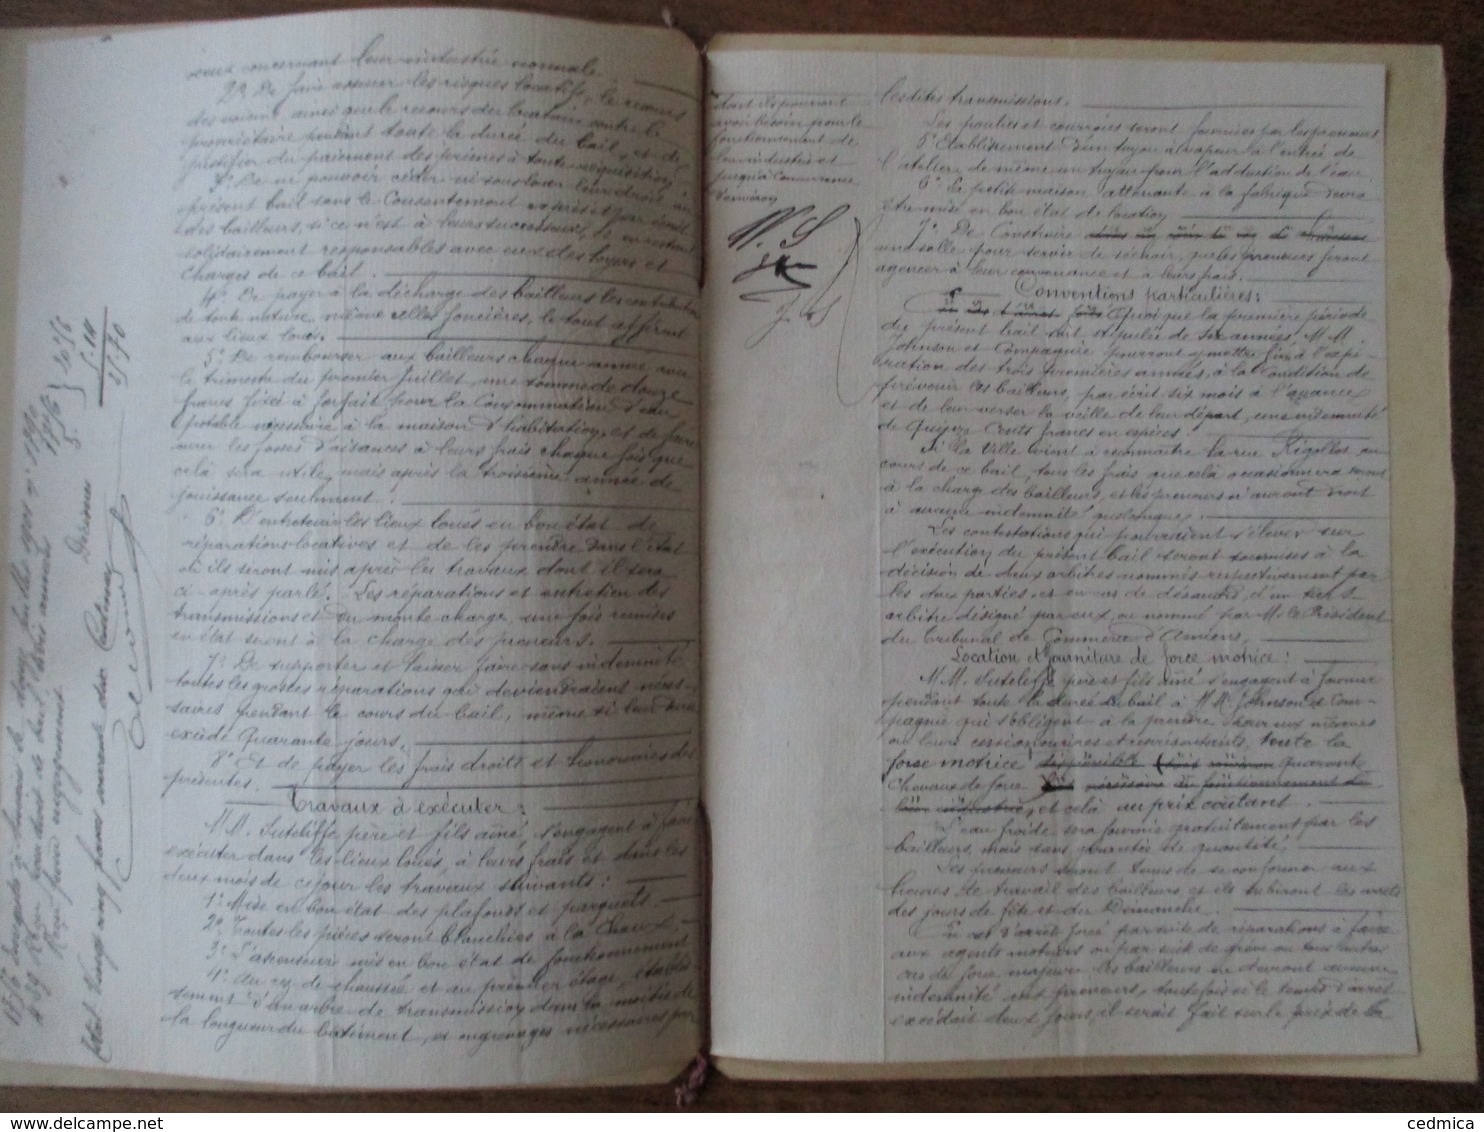 ceux concernant leur industrie normale.
2° De faire assurer les risques locatifs, le recours
des voisins ainsi que le recours du locataire contre le
propriétaire pendant toute la durée du bail, et de
justifier du paiement des primes à toute réquisition.
3° De ne pouvoir céder ni sous louer leur droit au
présent bail sans le Consentement exprès et par écrit
des bailleurs, si ce n'est à leurs successeurs, en restant
solidairement responsables avec eux des loyers et
charges de ce bail.
4° De payer à la décharge des bailleurs les contributions
de toute nature, même celles foncières, le tout afférent
aux lieux loués.
5° De rembourser aux bailleurs chaque année avec
le trimestre du premier Juillet, une somme de douze
francs fixée à forfait pour la Consommation d'eau
potable nécessaire à la maison d'habitation, et de faire
curer les fosses d'aisances à leurs frais chaque fois que
celà sera utile, mais après la troisième année de
jouissance seulement.
6° D'entretenir les lieux loués en bon état de
réparations locatives et de les prendre dans l'état
où ils seront mis après les travaux dont il sera
ci-après parlé. Les réparations et entretien des
transmissions et du monte charge, une fois remises
en état seront à la charge des preneurs.
7° De supporter et laisser faire sans indemnité
toutes les grosses réparations qui deviendraient néces-
saires pendant le cours du bail, même si leur durée
excède Quarante jours.
8° Et de payer les frais droits et honoraires des
présentes.
Travaux à exécuter:
M.M. Sutcliffe père et fils aîné, s'engagent à faire
exécuter dans les lieux loués, à leurs frais et dans les
deux mois de ce jour les travaux suivants:
1° Mise en bon état des plafonds et parquets
2° Toutes les pièces seront blanchies à la Chaux
3° L'ascenseur mis en bon état de fonctionnement
4° Au rez de chaussée et au premier étage, établis-
sement d'un arbre de transmission dans la moitié de
la longueur du bâtiment, et engrenages nécessaires pour
dont ils pourront
avoir besoin pour le
fonctionnement de
leur industrie et
jusqu'à Concurrence
d'environ
W. S
J. S
lesdites transmissions.
Les poulies et courroies seront fournies par les preneurs
5° Etablissement d'un tuyau à vapeur à l'entrée de
l'atelier, de même un tuyau pour l'adduction de l'eau
6° La petite maison attenante à la fabrique devra
être mise en bon état de location
7° De Construire
une salle pour servir de séchoir, que les preneurs feront
agencer à leur convenance et à leurs frais.
Conventions particulières:
Quoique la première période
du présent bail soit stipulée de six années, M.M.
Johnson et Compagnie pourront y mettre fin à l'expi-
ration des trois premières années, à la Condition de
prévenir les bailleurs, par écrit six mois à l'avance
et de leur verser la veille de leur départ, une indemnité
de Quinze Cents francs en espèces.
Si la Ville venait à reconnaître la rue Rigollot au
cours de ce bail, tous les frais que celà occasionnera seront
à la charge des bailleurs, et les preneurs n'auront droit
à aucune indemnité quelconque.
Les contestations qui pourraient s'élever sur
l'exécution du présent bail seront soumises à la
décision de deux arbitres nommés respectivement par
les deux parties, et en cas de désaccord, d'un tiers
arbitre désigné par eux ou nommé par M. le Président
du Tribunal de Commerce d'Amiens.
Location et fourniture de force motrice:
M.M. Sutcliffe père et fils aîné s'engagent à fournir
pendant toute la durée du bail à M.M. Johnson et Com-
pagnie qui s'obligent à la prendre pour eux mêmes
ou leurs cessionnaires et représentants, toute la
force motrice disponible Quarante
Chevaux de force nécessaire au fonctionnement de
leur industrie, et celà au prix coûtant.
L'eau froide sera fournie gratuitement par les
bailleurs, mais sans garantie de quantité.
Les preneurs seront tenus de se conformer aux
heures de travail des bailleurs, et ils subiront les arrêts
des jours de fête et du Dimanche.
En cas d'arrêt forcé par suite de réparations à faire
aux agents moteurs ou par suite de grève ou tous autres
cas de force majeure les bailleurs ne devront aucune
indemnité aux preneurs, toutefois si le temps d'arrêt
excédait deux jours, il serait fait sur le prix de la
cedmica